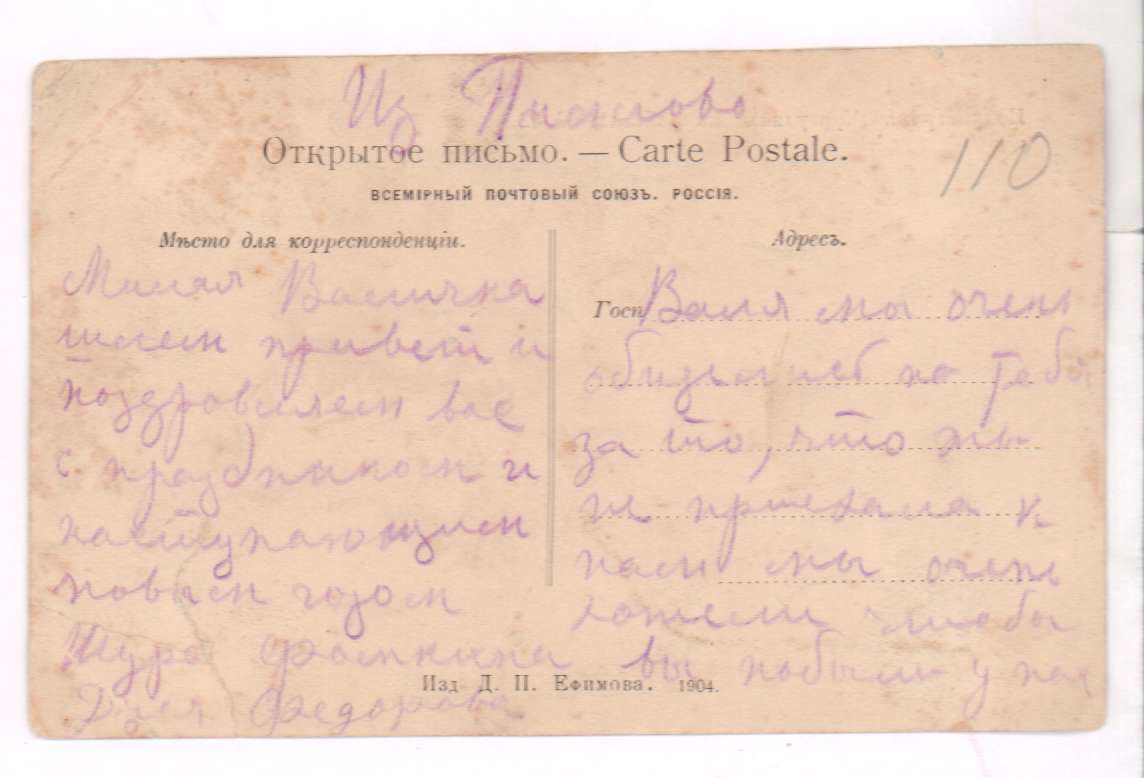 Из
Открытое письмо. — Carte Postale.
110
ВСЕМІРНЫЙ ПОЧТОВЫЙ СОЮЗЪ. РОССІЯ.
Мѣсто для корреспонденціи.
Милая Валичка
шлем привет и
поздровляем вас
с праздником и
наступающим
новым годом
Шура Фомкина
Федорова
Адресъ.
Госп
Валя мы очень
на тебя
за то, что ты
не приехала к
нам мы очень
хотели чтобы
вы побыли у нас
Изд Д. П. Ефимова. 1904.